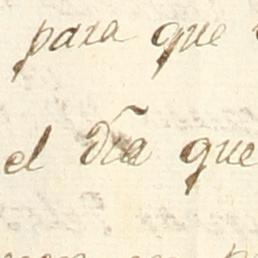 para que
el dia que